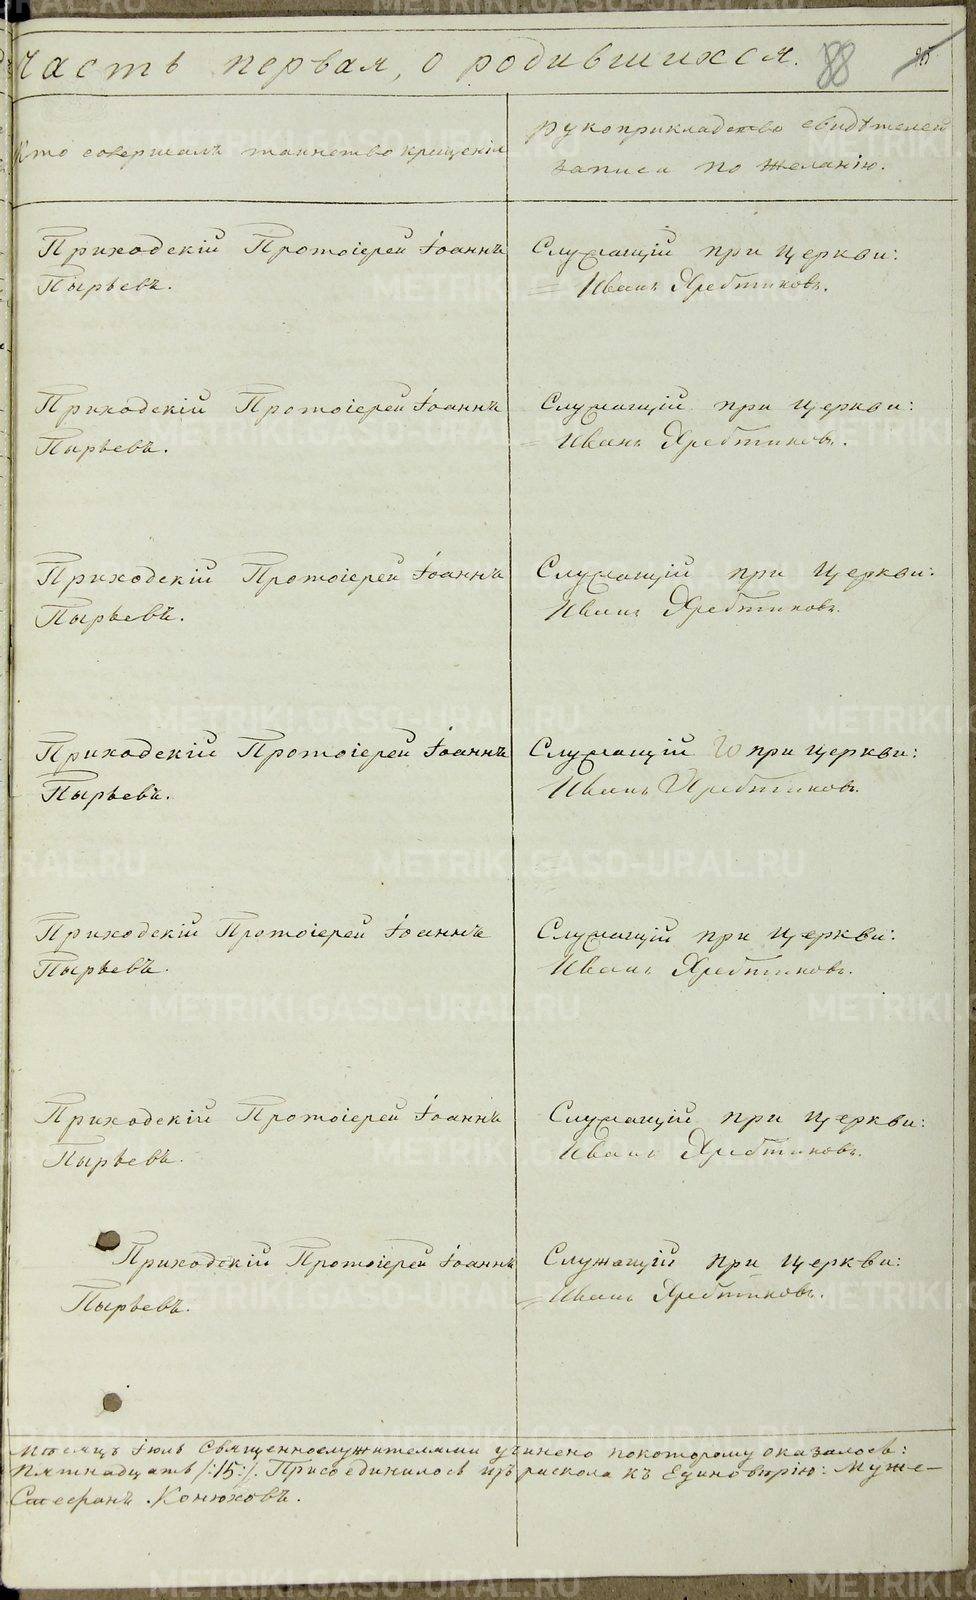 Часть первая, о родившихся. 88
Кто совершалъ таинство крещенія
рукоприкладство свидѣтелей
записи по желанію.
Приходскій Протоіерей Іоаннъ
Пырьевъ.
Служащій при церкви:
Иванъ Хребтиковъ.
Приходскій Протоіерей Іоаннъ
Пырьевъ.
Служащій при церкви:
Иванъ Хребтиковъ.
Приходскій Протоіерей Іоаннъ
Пырьевъ.
Служащій при церкви:
Иванъ Хребтиковъ.
Приходскій Протоіерей Іоаннъ
Пырьевъ.
Служащій при церкви:
Иванъ Хребтиковъ.
Приходскій Протоіерей Іоаннъ
Пырьевъ.
Служащій при церкви:
Иванъ Хребтиковъ.
Приходскій Протоіерей Іоаннъ
Пырьевъ.
Служащій при церкви:
Иванъ Хребтиковъ.
Приходскій Протоіерей Іоаннъ
Пырьевъ.
Служащій при церкви:
Иванъ Хребтиковъ.
Мѣсяцъ Іюль Священнослужителями учинено покоторому оказалось:
Пятнадцать /:15:/. Присоединилось изъ раскола къ Единовѣрію: Муже-
Стефанъ Конюховъ.
METRIKI.GASO-URAL.RU